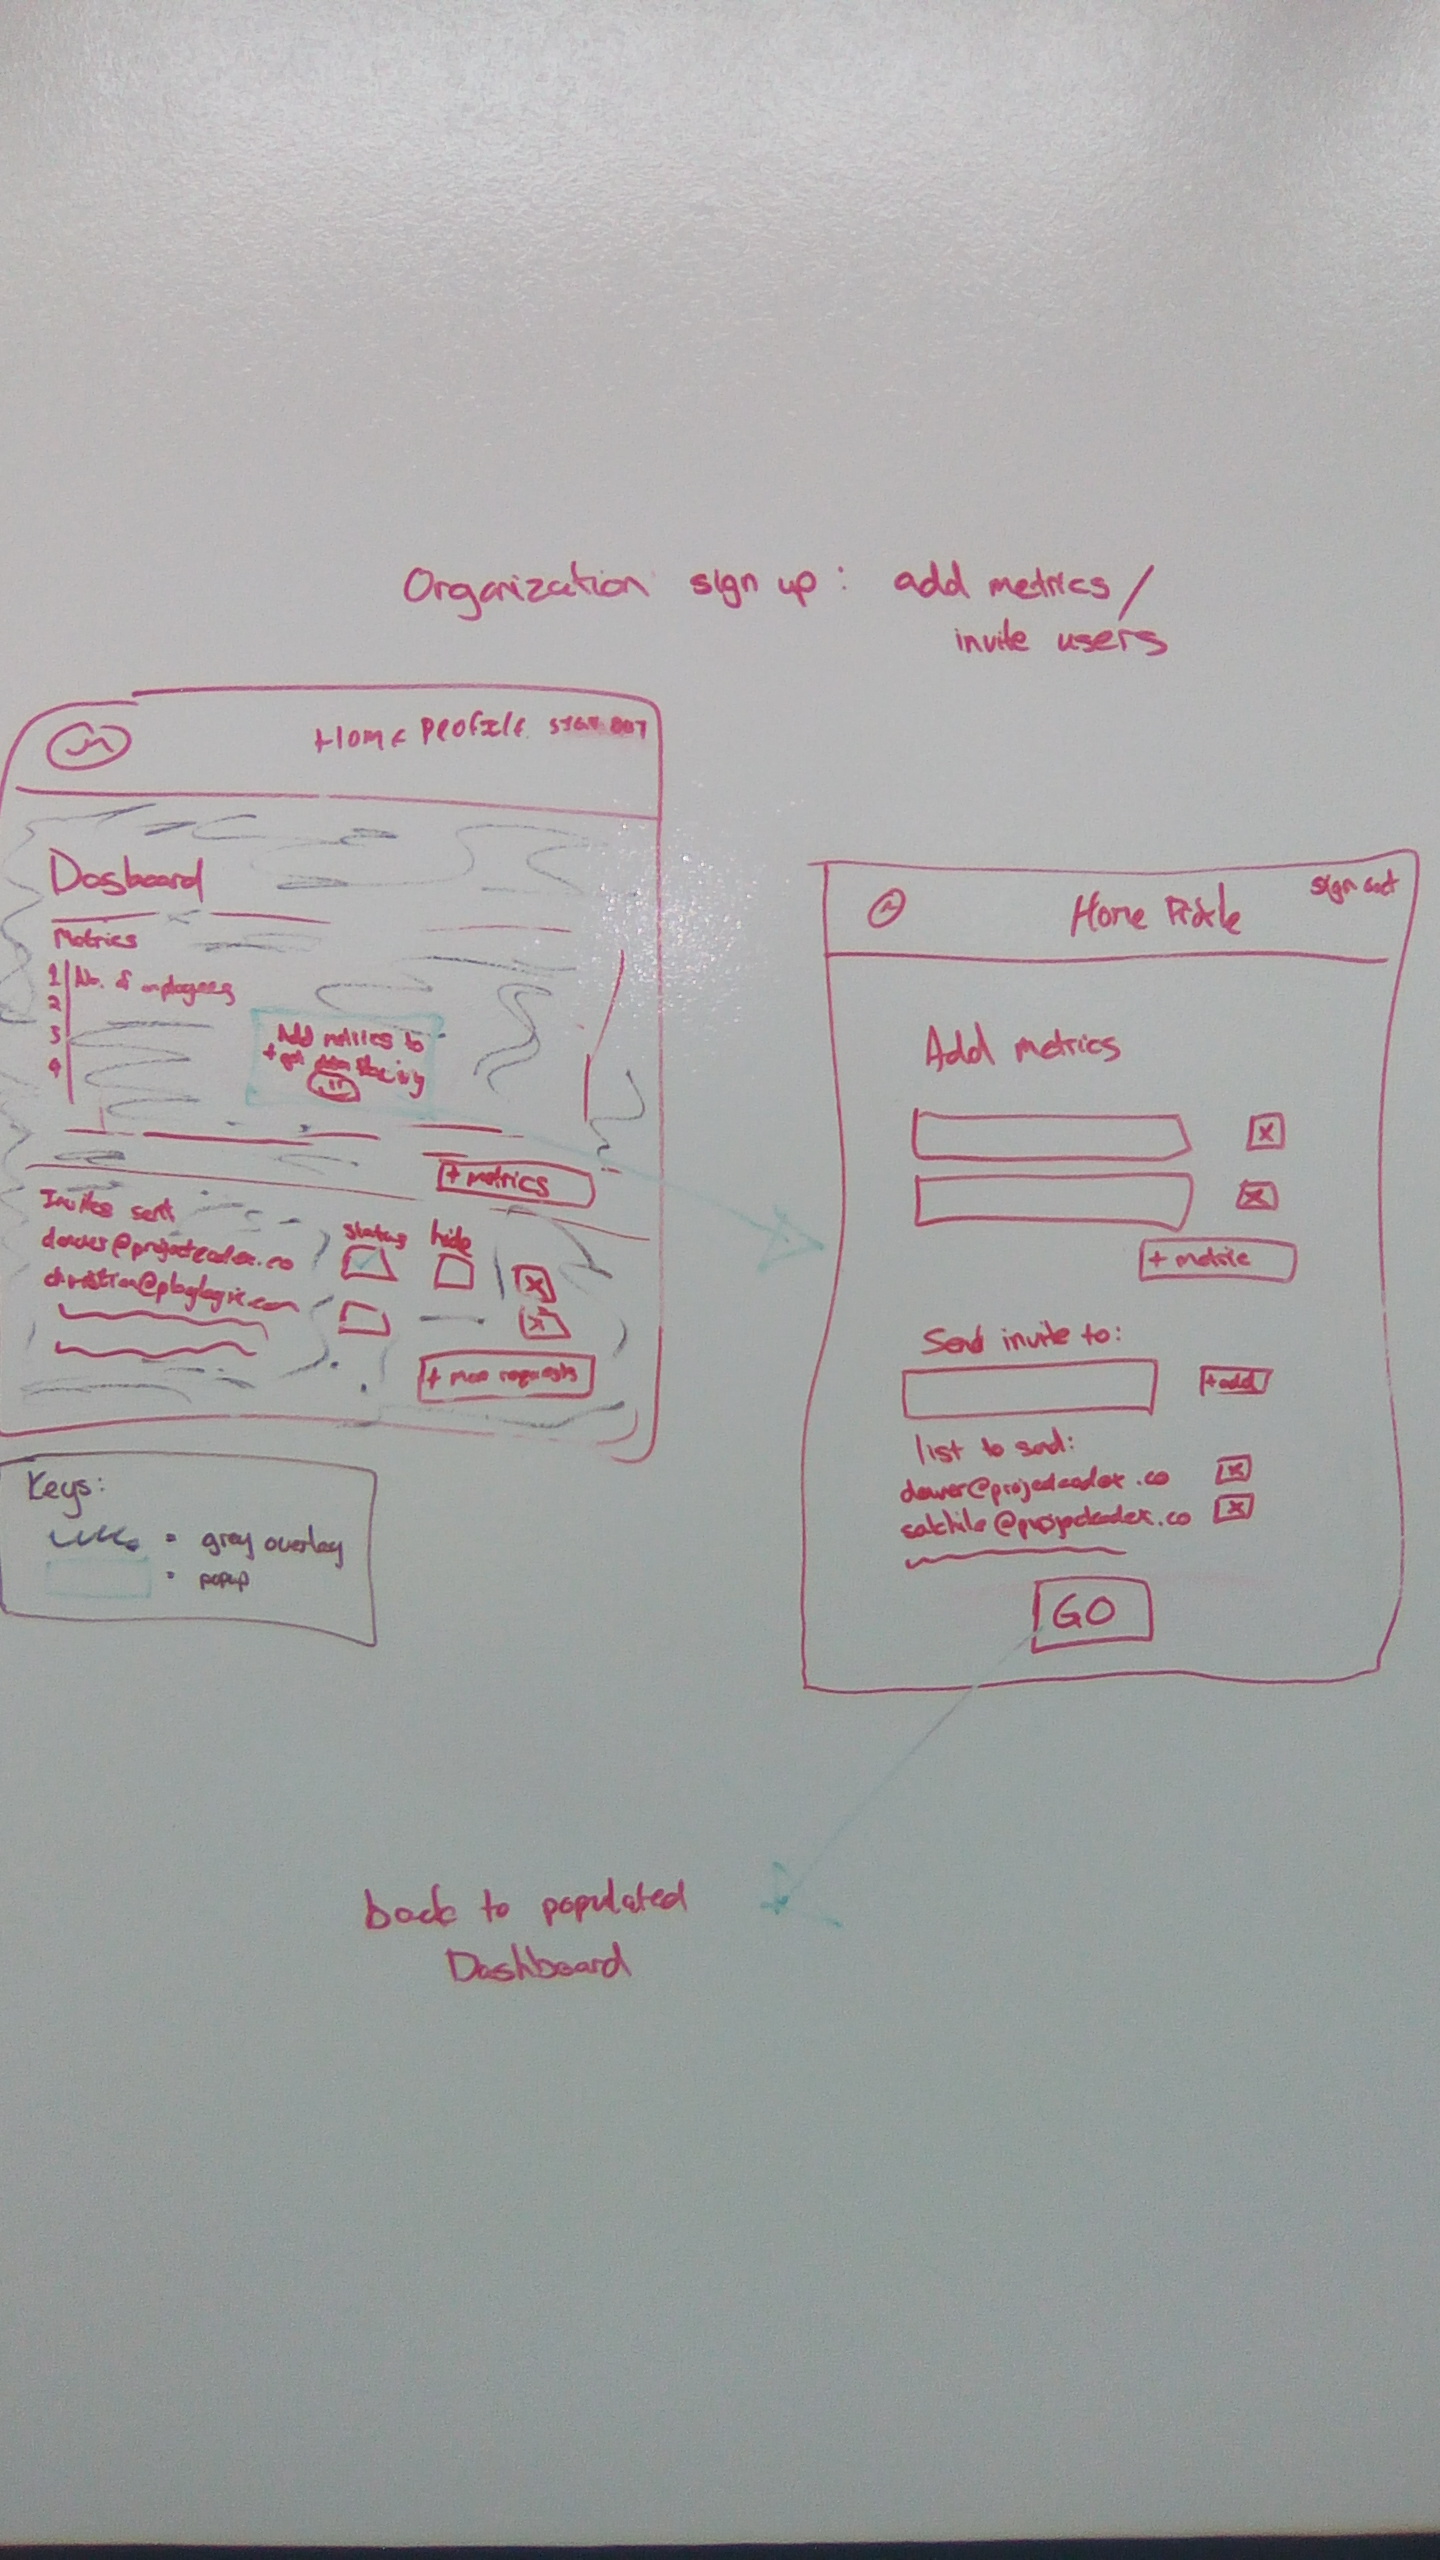 Organization sign up: add metrics/
invite users
Home Profile Sign out
Dasboard
Metrics
1 No. of employees
2
3
4
Add metrics to
+ metrics
Invites sent
status hide
dawer@projectcodex.co
X
X
+ more requests
Keys:
= grey overlay
= popup
sign out
Home
Add metrics
X
X
+ metric
Send invite to:
+add
list to send:
dawer@projectcodex.co X
@projectcodex.co X
GO
back to populated
Dashboard